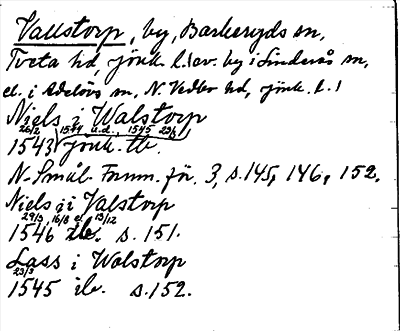 Vallstorp, by, Barkeryds sn,
Tveta hd, jönk. l. l. av. by i Linderås sn,
el. i Adelövs sn, N. Vedbo hd, jönk. l. !
Niels i Walstorp
26/2 1544 u.d., 1545 23/3
1543 jönk. tb.
N. Smål. Fornm. för. 3, s. 145, 146, 152.
Niels i Valstorp
29/3, 16/8 el. 13/12
1546 ib. s. 151.
Lass i Walstorp
23/3
1545 ib. s. 152.